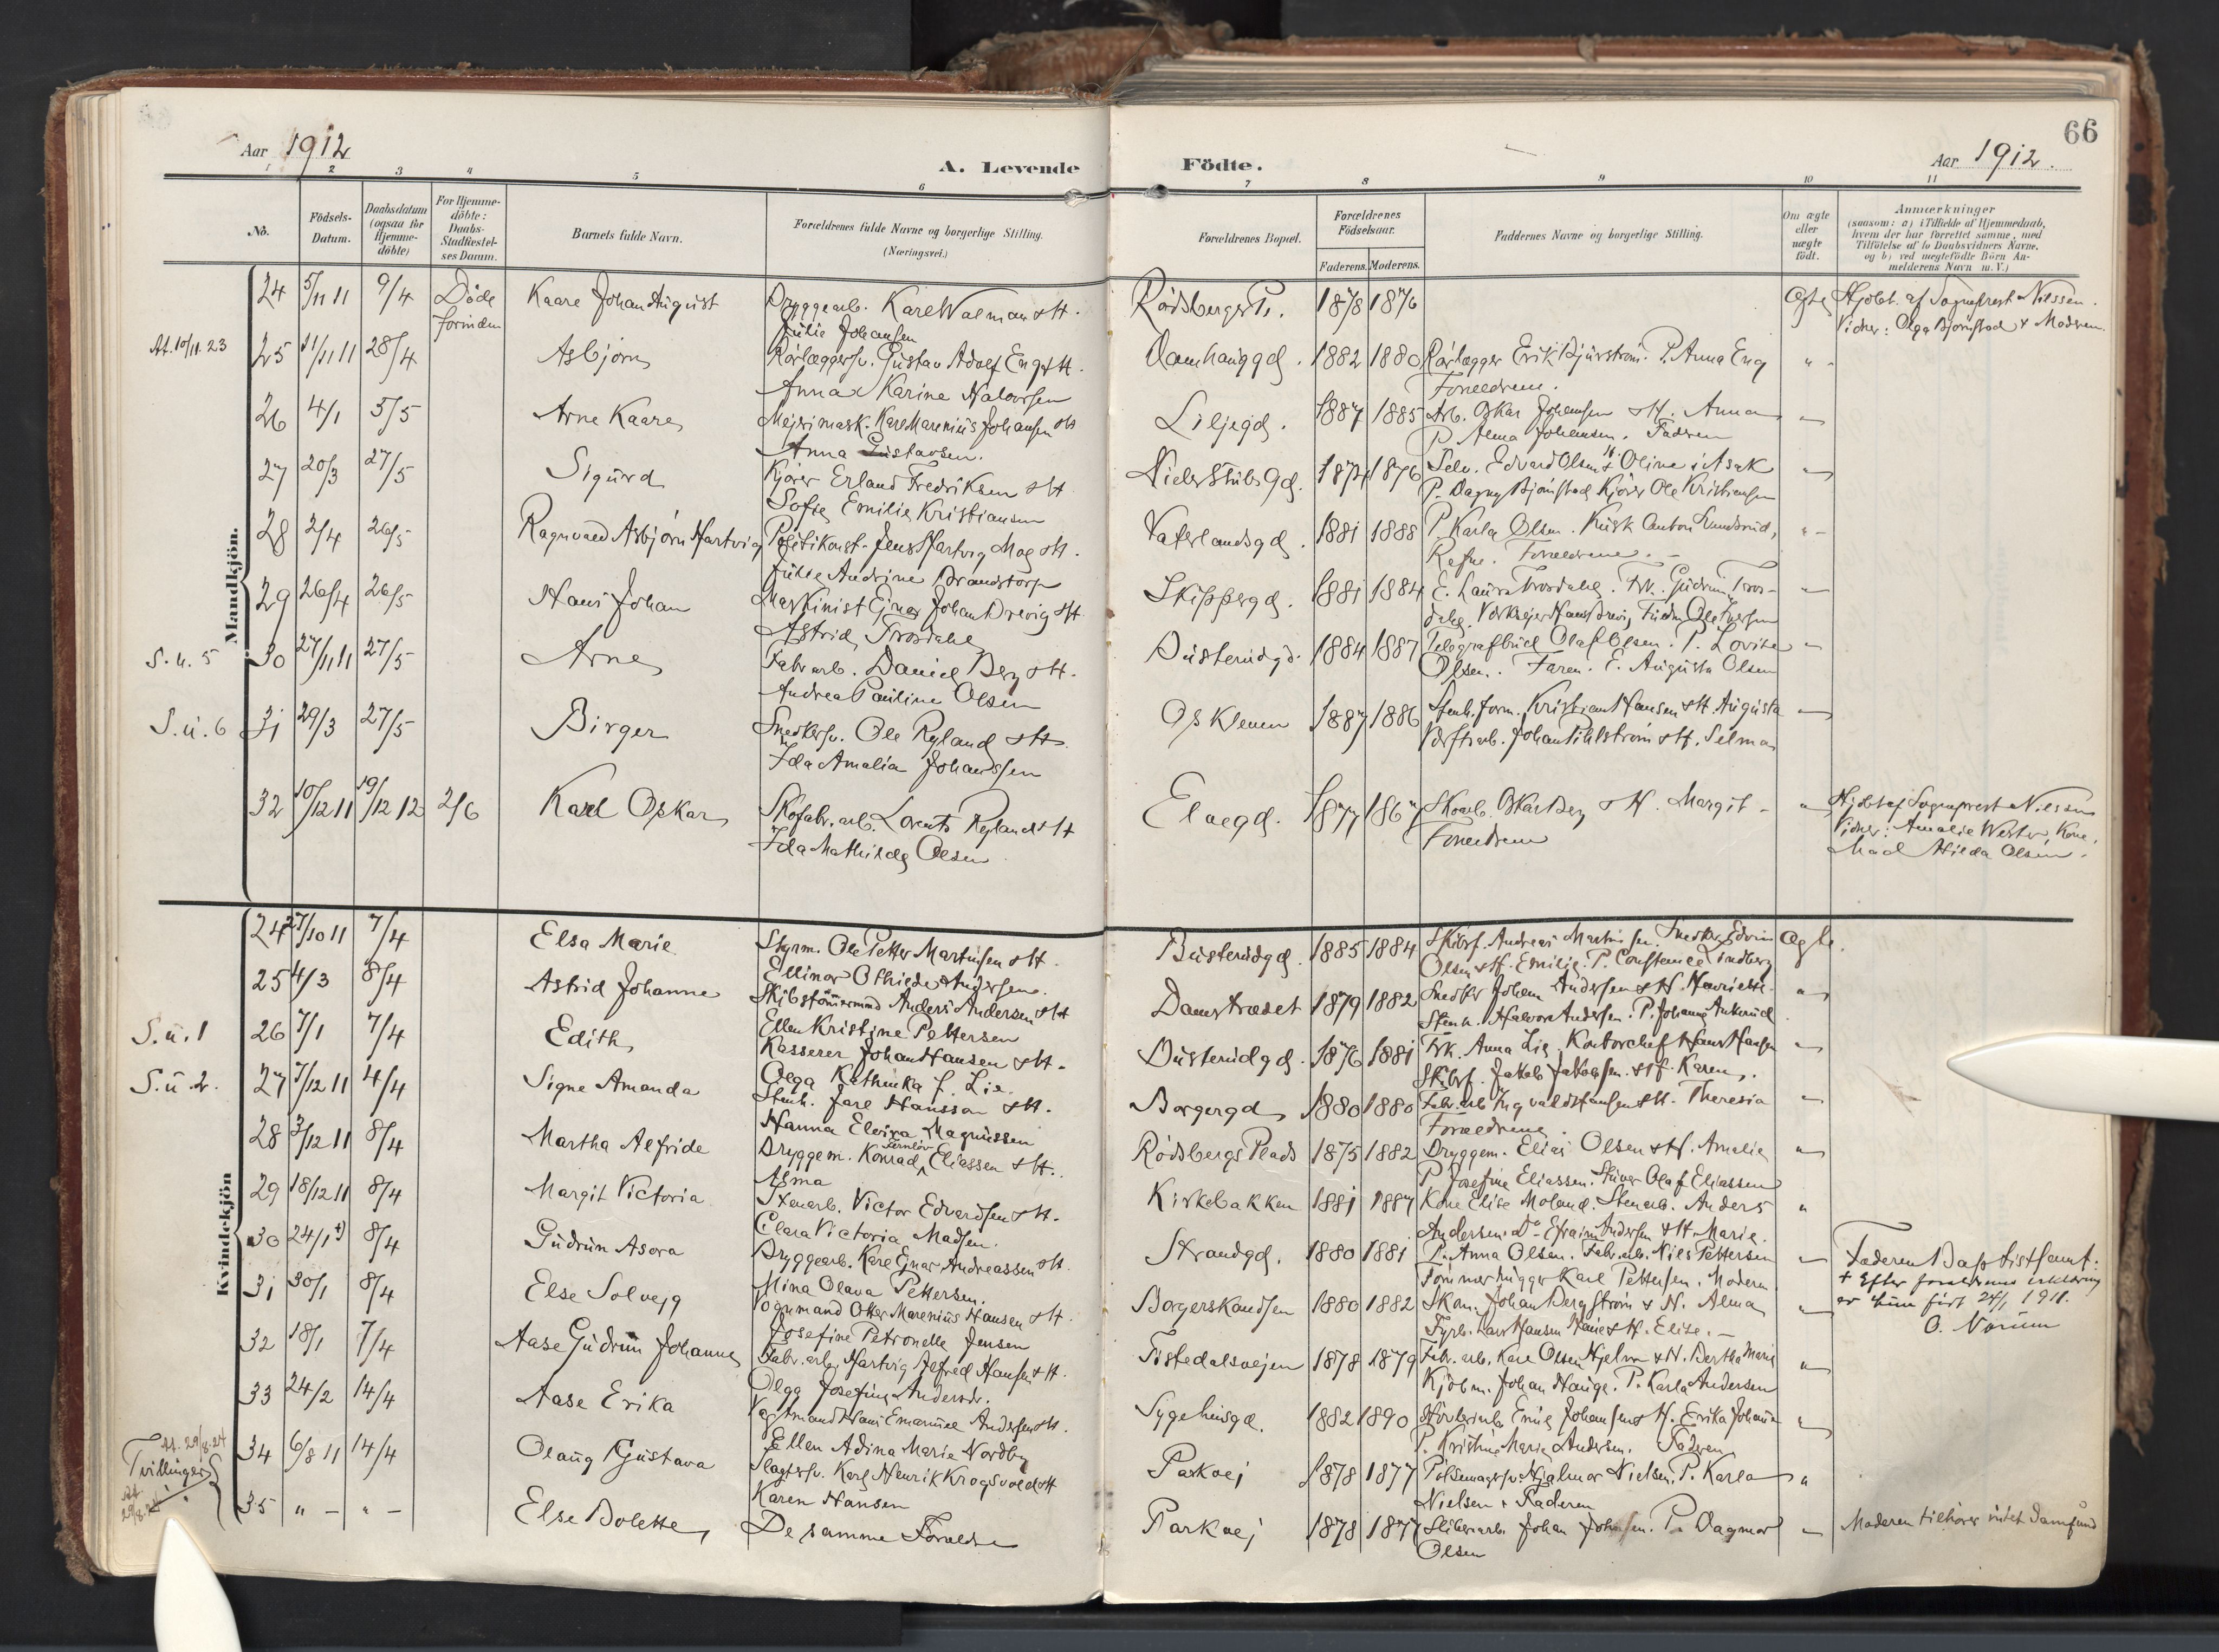 66
Aar 1912
A. Levende Födte.
Aar 1912.
1 2 3 4 5 6 7 8 9 10 11
No.
Födsels-Datum.
Daabsdatum (ogsaa for Hjemme-döbte)
For Hjemme-döbte: Daabs-Stadfæstel-ses Datum.
Barnets fulde Navn.
Forældrenes fulde Navne og borgerlige Stilling.
(Næringsvei.)
Forældrenes Bopæl.
Forældrenes Födselsaar.
Faderens. Moderens.
Faddernes Navne og borgerlige Stilling.
Om ægte eller uægte födt.
Anmærkninger
(saasom: a) i Tilfælde af Hjemmedaab,
hvem der har forrettet samme, med
Tilföielse af to Daabsvidners Navne,
og b) ved uægtefödte Börn An-
melderens Navn m. V.)
Mandkjön.
24 5/11 11 9/4 Døde forinden Kaare Johan August Bryggearb. Karl Walman & H. Rødsbergs Pl. 1878 1876 Ægte Hjdbt. af Sogneprest Nilssen.
Julie Johansen Vidner: Olga Bjørnstad & Moderen.
At. 10/11.23 25 11/11 11 28/4 Asbjørn Rørlæggersv. Gustav Adolf Eng & H. Damhauggd. 1882 1880 Rørlægger Erik Bjurstrøm. P. Anna Eng "
Anna Karine Halvorsen Forældrene.
26 4/1 5/5 Arne Kaare Mejerimask. Karl Marenius Johansen & H. Liljegd. 1887 1885 Arb. Oskar Johansen & H. Anna "
Anna Gustavsen. P. Alma Johansen. Faderen
27 20/3 27/5 Sigurd Kjører Erland Fredriksen & H. Niels Stubs Gd. 1874 1876 Selv. Edvard Olsen & H. Oline i Asak "
Sofie Emilie Kristiansen P. Dagny Bjørnstad Kjører Ole Kristiansen
28 2/4 26/5 Ragnvald Asbjørn Hartvig Politikonst. Jens Hartvig Moe & H. Vaterlandsgd. 1881 1888 P. Karla Olsen. Kusk Anton Lundsrud, "
Julie Andrine Brandstorp Forældrene.
29 26/4 26/5 Hans Johan Maskinist Ejnar Johan Brevig & H. Skippergd. 1881 1884 E. Laura Trosdahl. Frk. Gudrun Tros- "
Astrid Trosdahl
S.u. 5 30 27/11 11 27/5 Arne Fabr.arb. Daniel Berg & H. Busterudgd. 1884 1887 Telegrafbud Olaf Olsen. P. Lovise "
Andrea Pauline Olsen Olsen. Faren. E. Augusta Olsen
S.u. 6 31 29/3 27/5 Birger Snedkersv. Ole Ryland & H. Os Kleven 1887 1886 Stenh. form. Kristian Hansen & H. Augusta "
Ida Amalia Johanssen Værftsarb. Johan Pihlstrøm & H. Selma
32 10/12 11 19/12 12 2/6 Karl Oskar Skofabr.arb. Lorents Ryland & H. Elvegd. 1877 1867 Skoarb. Oskar Berg & H. Margit - " Hjdbt af Sogneprest Nilssen
Ida Mathilde Olsen Forældrene Vidner: Amalie Wester, Kone.
Mad Hilda Olsen.
Kvindekjön
24 27/10 11 7/4 Elsa Marie Styrm. Ole Petter Martinsen & H. Busterudgd. 1885 1884 Skibsf. Andreas Martinsen. Snedker Edvin Ægte.
Ellinor Othilde Andersen. Olsen & H. Emilie. P. Constance Lindberg
25 4/3 8/4 Astrid Johanne Skibstømmermand Anders Andersen & H. Damstrædet 1879 1882 Snedker Johan Andersen & H. Henriette. "
Ellen Kristine Pettersen Stenh. Halvor Andersen. P. Johanne Ankerud
S.u. 1 26 7/1 7/4 Edith Kasserer Johan Hansen & H. Busterudgd. 1876 1881 Frk. Anna Lie. Kontorchef Hans Hansen "
Olga Kathinka f. Lie. Skibsf. Jakob Jakobsen & H. Karen.
S.u 2. 27 7/12 11 4/4 Signe Amanda Stenh. Jarl Hansson & H. Borgergd 1880 1880 Fabr.arb Ingvald Hansen & H. Theresia "
Hanna Elvira Magnussen Forældrene.
28 3/12 11 8/4 Martha Alfride Bryggem. Konrad Eliassen & H. Rødsbergs Plads 1875 1882 Bryggem. Elias Olsen & H. Amalie "
Asma P. Josefine Eliassen. Olaf Eliassen
29 18/12 11 8/4 Margit Victoria Stenarb. Victor Edvardsen & H. Kirkebakken 1881 1887 Kone Elise Moland. Stenarb. Anders "
Clara Victoria Madsen. Andersen. Do Efraim Andersen & H. Marie.
30 24/1 +) 8/4 Gudrun Asora Bryggearb. Karl Ejnar Andreassen & H. Strandgd. 1880 1881 P. Anna Olsen. Fabr.arb. Nils Pettersen " Faderen Baptistsamf:
Mina Olava Pettersen. Tømmerhugger Karl Pettersen. Modern + Efter forældrenes erklæring
31 30/1 8/4 Else Solveig Vognmand Otter Marenius Hansen & H. Borgerskandsen 1880 1882 Skom. Johan Bergstrøm & H. Alma " er hun født 24/1 1911.
Josefine Petronelle Jensen Fyrb. Lars Hansen & H. Elise. - O. Norum
32 18/1 7/4 Aase Gudrun Johanne Fabr.arb. Hartvig Alfred Hansen & H. Tistedalsvejen 1878 1879 Fabr.arb. Karl Olsen Hjelm & H. Bertha Marie "
Olga Josefine Andersdr. Kjøbm. Johan Hauge. P. Karla Andersen
33 24/2 14/4 Aase Erika Vagtmand Hans Emanuel Andersen & H. Sygehusgd. 1882 1890 Emil Johansen & H. Erika Johanna "
Ellen Adina Marie Nordby P. Kristine Marie Andersen. Faderen
At. 29/8.24 34 6/8 11 14/4 Olaug Gustava Slagtersv. Karl Henrik Krogsvold & H. Parkvej 1878 1877 Pølsemagersv. Hjalmar Nielsen. P. Karla "
Tvillinger Karen Hansen Nielsen & Faderen
At 29/8.24 35 " - " - Else Bolette De samme Forældre Parkvej 1878 1877 Sliberiarb. Johan Johnsen. P. Dagmar " Moderen tilhører intet Samfund
Olsen